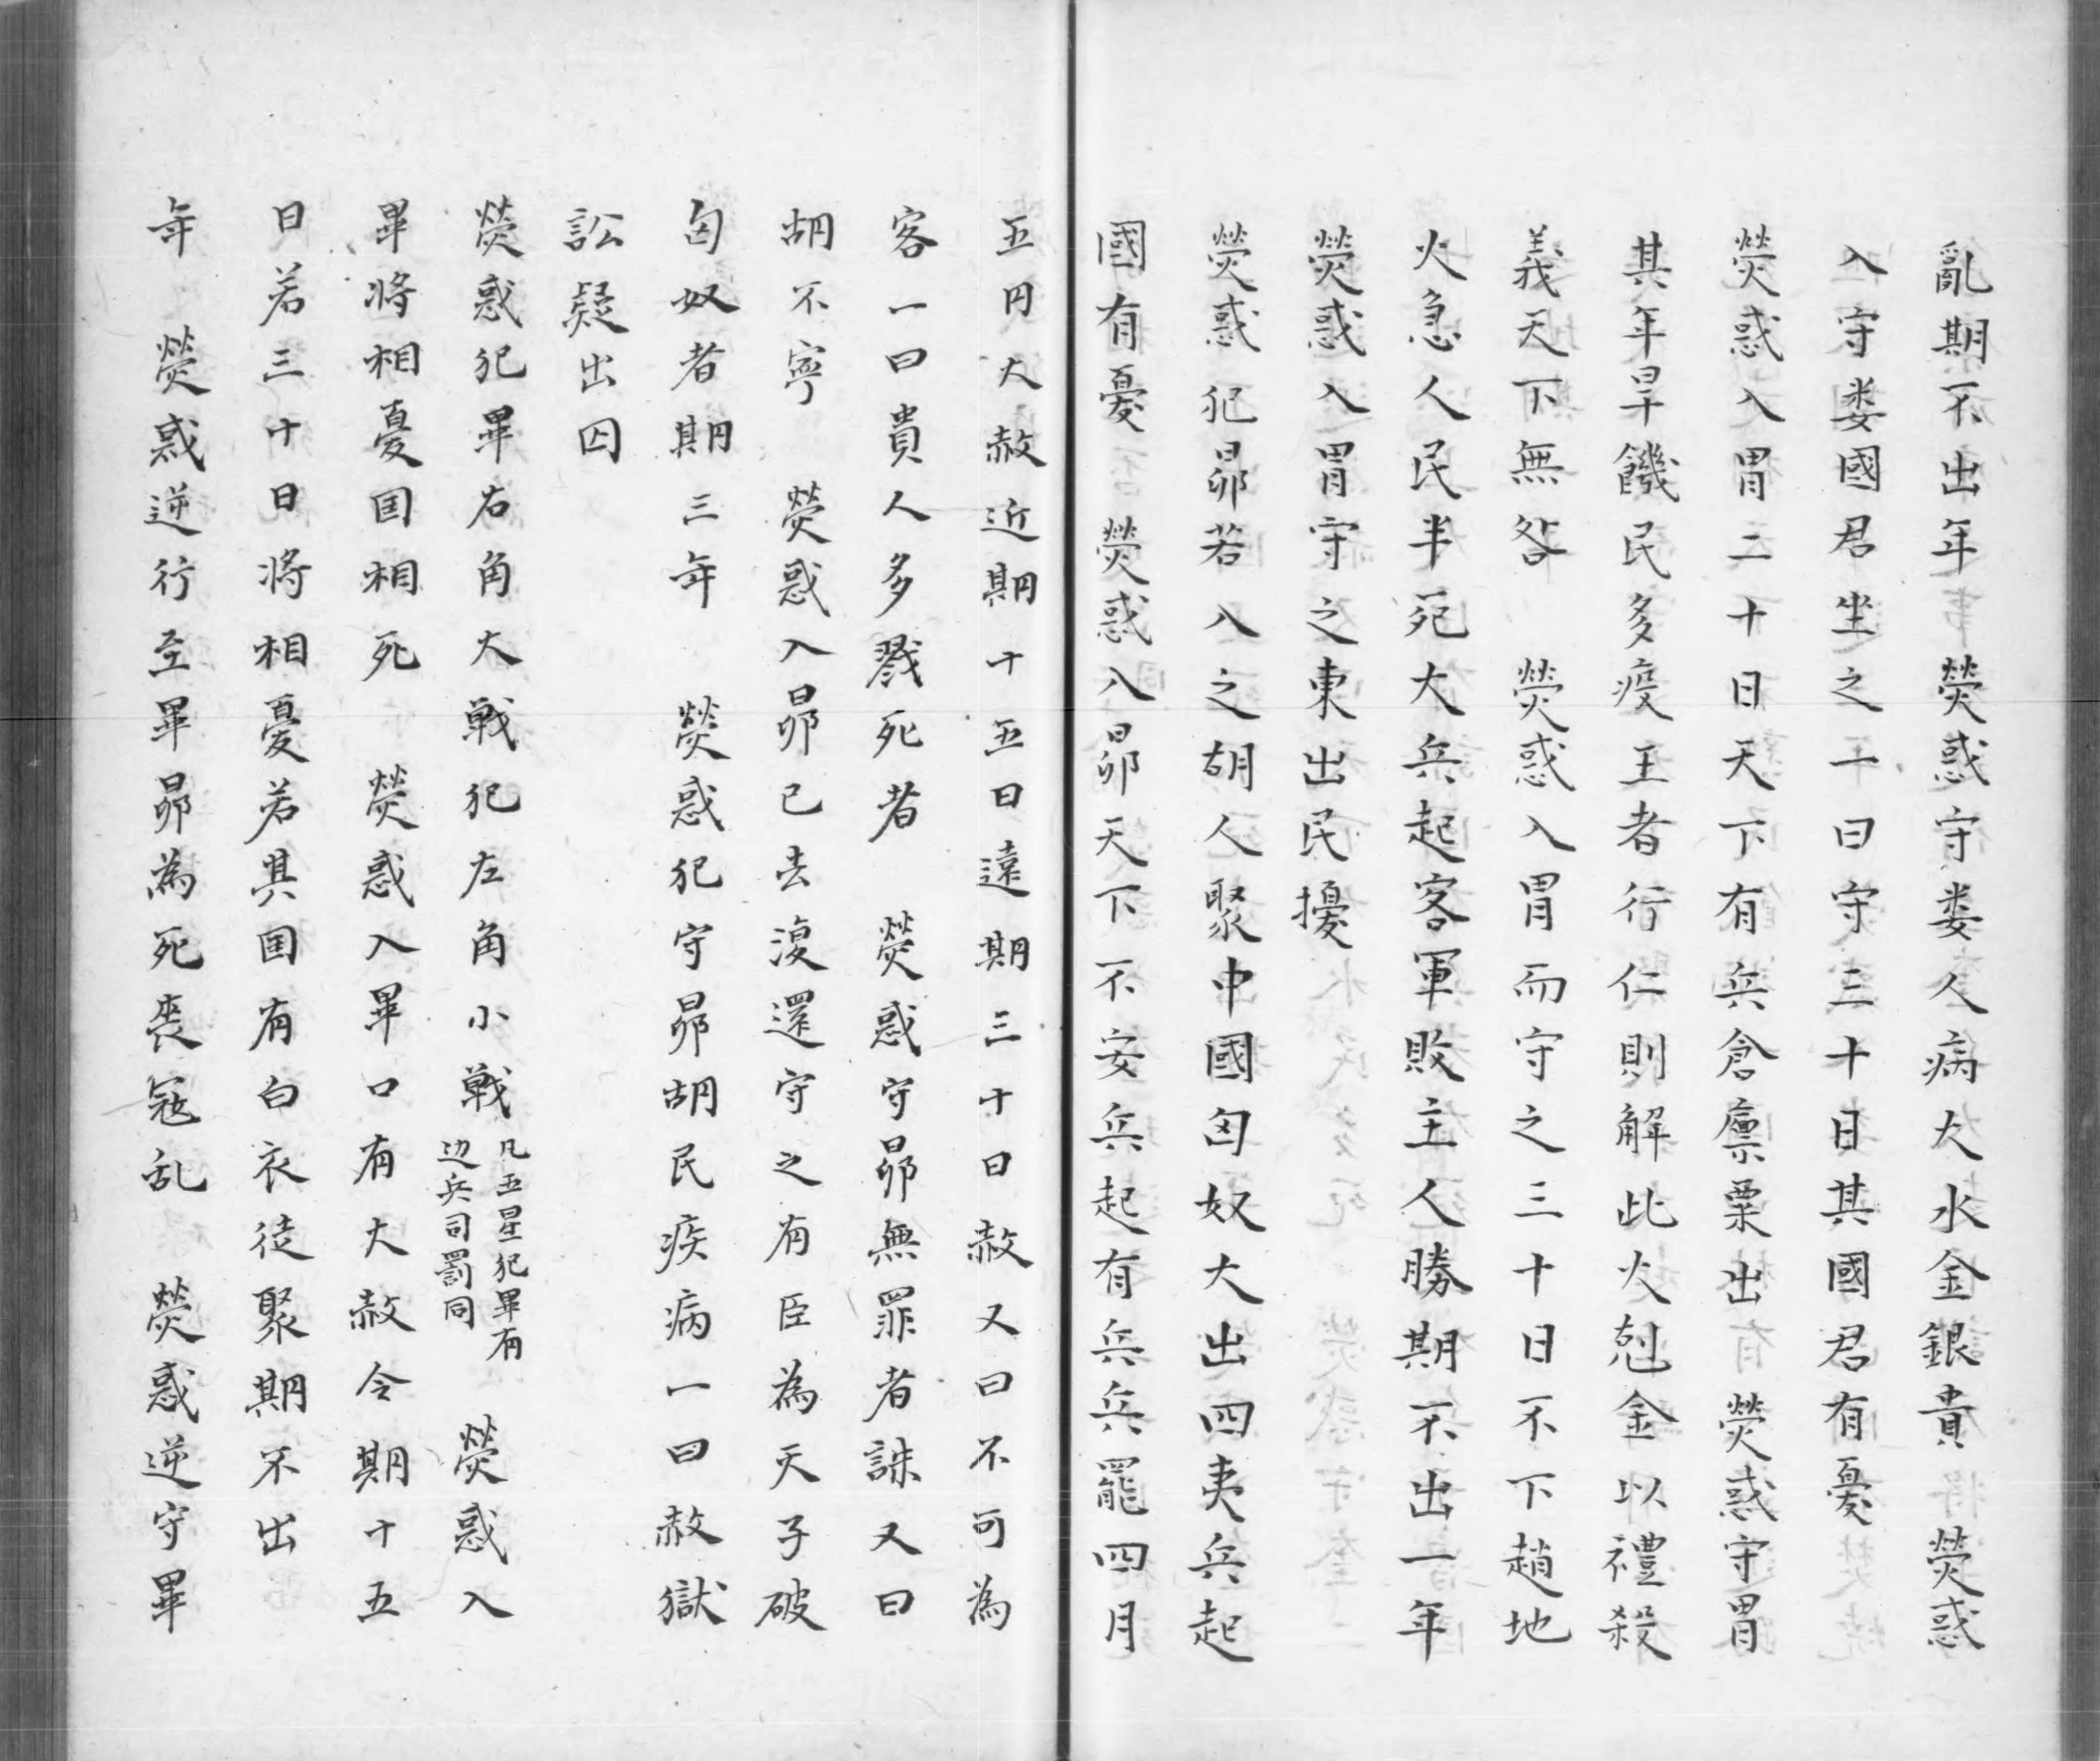 亂期不出年　熒惑守婁人病大水金銀貴　熒惑
入守婁國君坐之一曰守三十日其國君有憂
熒惑入胃二十日天下有兵倉廪粟出　熒惑守胃
其年旱饑民多疫王者行仁則解此火尅金以禮殺
義天下無咎　熒惑入胃而守之三十日不下趙地
火急人民半死大兵起客軍敗主人勝期不出一年
熒惑入胃守之東出民擾
熒惑犯昴若入之胡人聚中國匈奴大出四夷兵起
國有憂　熒惑入昴天下不安兵起有兵兵罷四月
五月大赦近期十五日遠期三十日赦又曰不可為
客一曰貴人多戮死者　熒惑守昴無罪者誅又曰
胡不寧　熒惑入昴已去復還守之有臣為天子破
匈奴者期三年　熒惑犯守昴胡民疾病一曰赦獄
訟疑出囚
熒惑犯畢右角大戦犯左角小戦凡五星犯畢有边兵司罰同　熒惑入
畢将相憂囯相死　熒惑入畢口有大赦令期十五
日若三十日将相憂若其囯有白衣徒聚期不出
年　熒惑逆行至畢昴為死丧冦乱　熒惑逆守畢